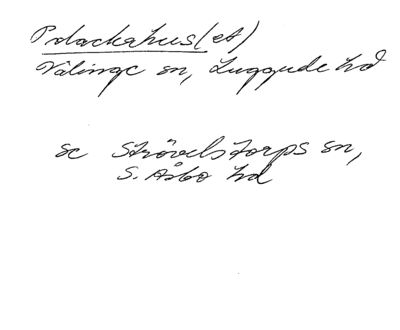 Polackahus(et)
Välinge sn, Luggude hd
se Strövelstorps sn,
S. Åsbo hd